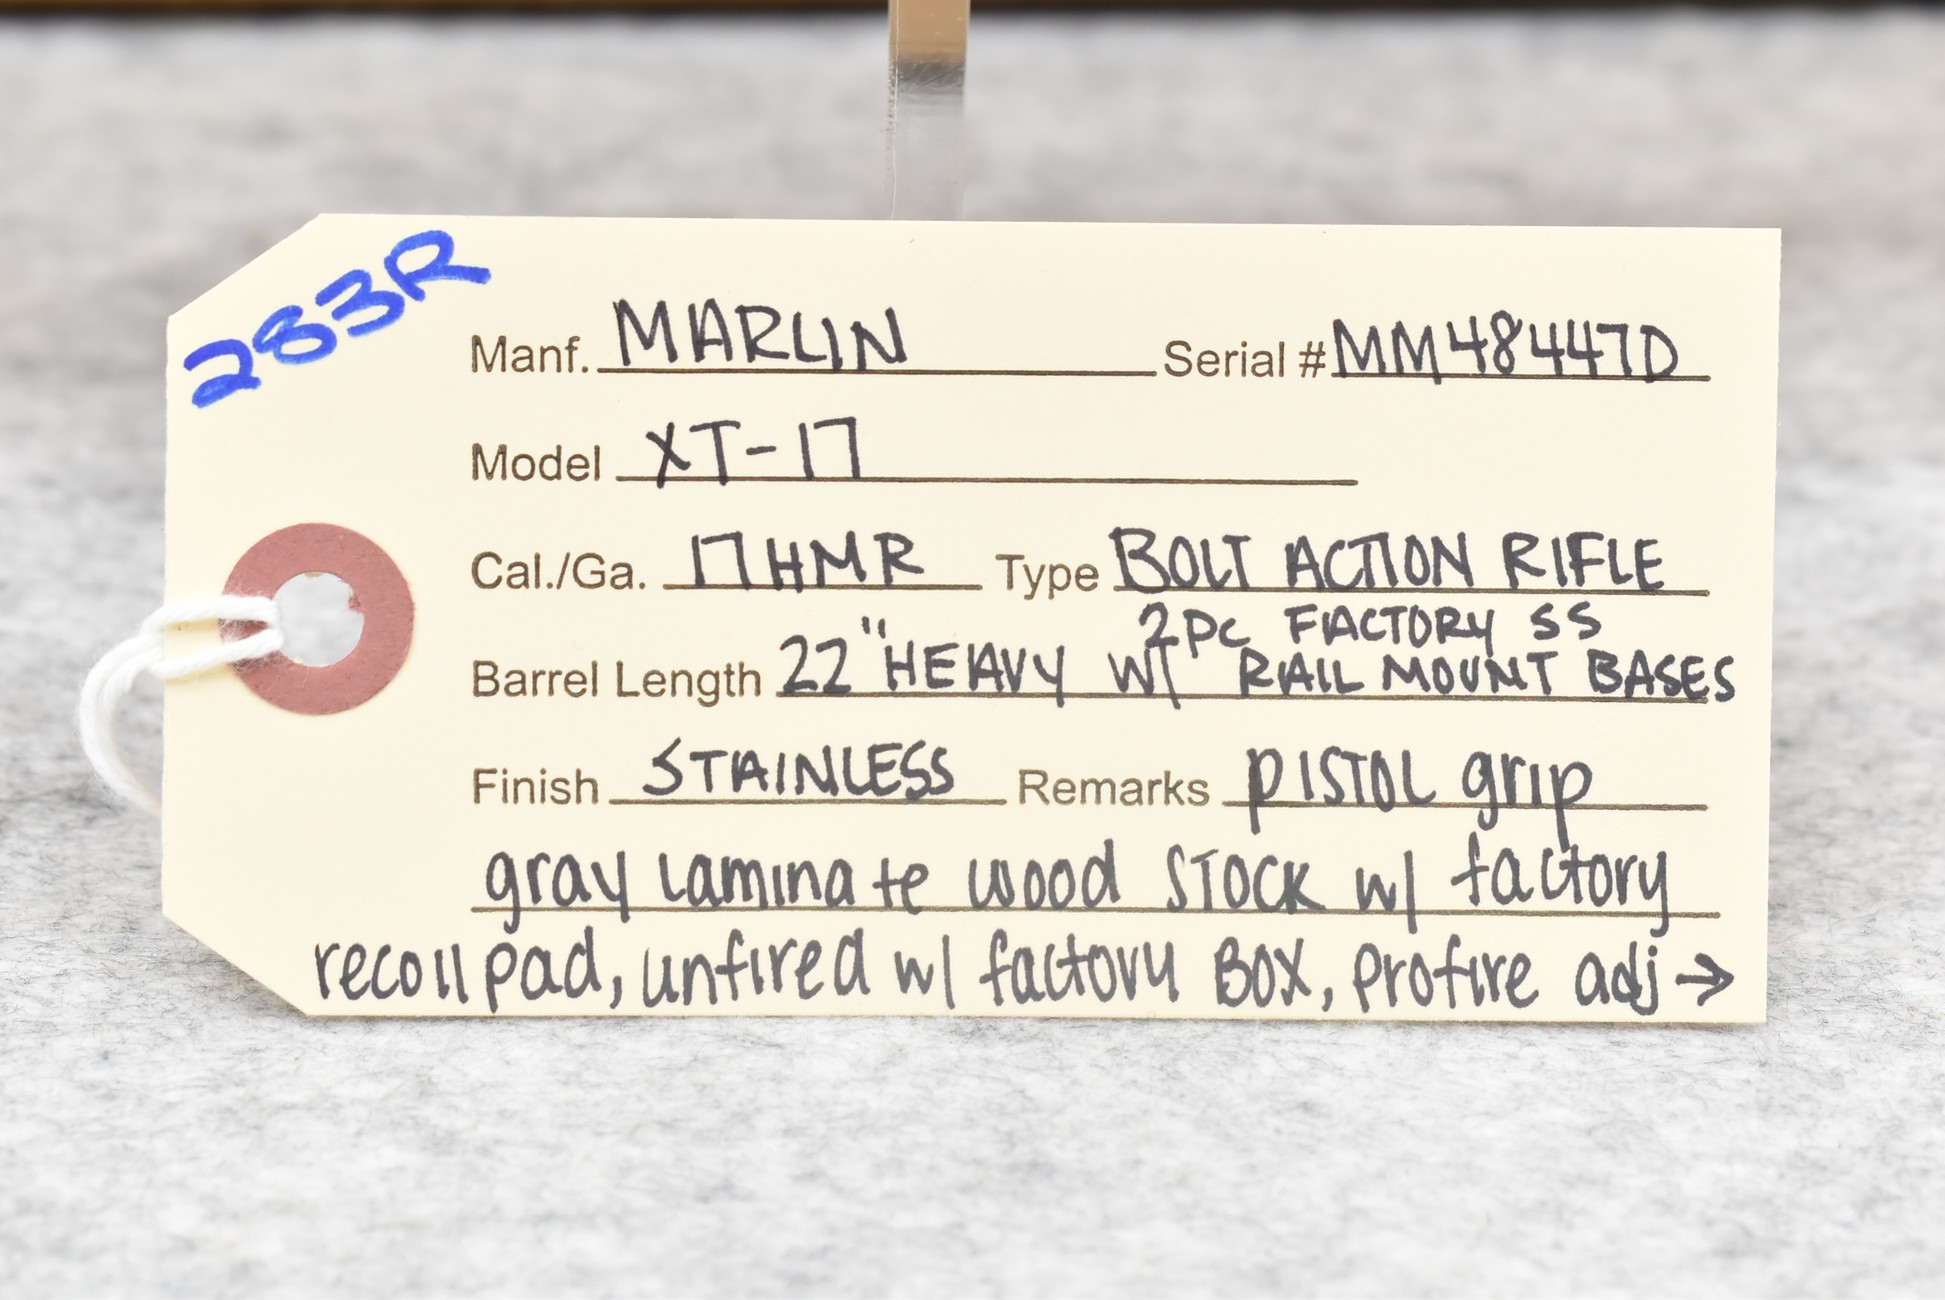 283R
Manf. MARLIN Serial # MM48447D
Model XT-17
Cal./Ga. 17HMR Type BOLT ACTION RIFLE
2PC FACTORY SS
Barrel Length 22" HEAVY W/ RAIL MOUNT BASES
Finish STAINLESS Remarks PISTOL grip
gray laminate wood STOCK w/ factory
recoil pad, unfired w/ factory BOX, profire adj →